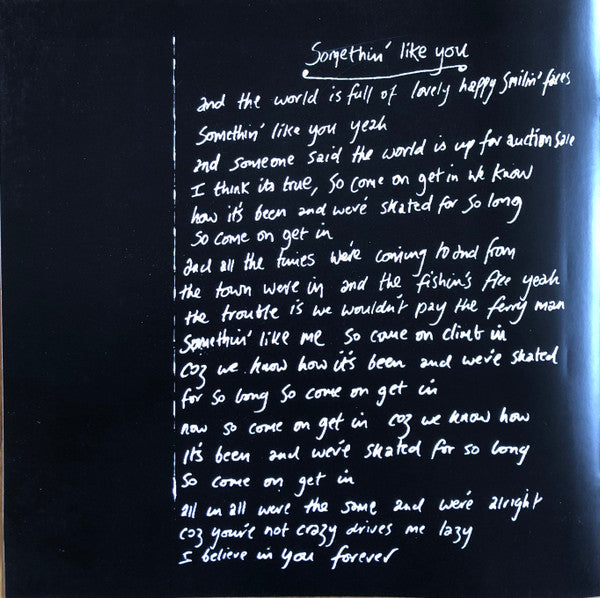 Somethin' like you
and the world is full of lovely happy smilin' faces
Somethin' like you yeah
and someone said the world is up for auction sale
I think its true, so come on get in we know
how it's been and we've skated for so long
so come on get in
and all the times we're coming to and from
the town were in and the fishin's free yeah
the trouble is we wouldn't pay the ferry man
Somethin' like me so come on climb in
coz we know how it's been and we've skated
for so long so come on get in
now so come on get in coz we know how
it's been and we've skated for so long
so come on get in
all in all were the same and we're alright
coz you're not crazy drives me lazy
I believe in you forever